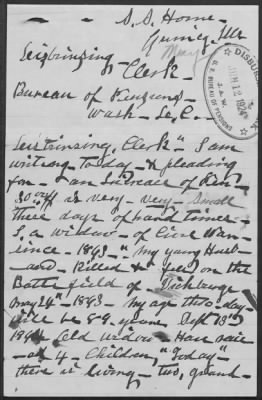 S. S. Home -
Quincy, Ills
Disbursing
Clerk -
Bureau of Pensions
Wash - D. C. -
DISBURS
JUN 12 1924
U.S. BUREAU OF PENSIONS
Disbursing, Clerk" I am
writing to-day - & pleading
for - an Increase of Pen
is very - very - Small
these days of hard times -
I, a widow - of Civil War -
since - 1863 - " my young Husb
and - Killed & fell on the
Battle field of - Vicksburg
May 24" - 1863 - my age this day
will be 89 - years Sept 13"
Old widow - Have
4 - Children, "Today" -
there is living - two, grand -